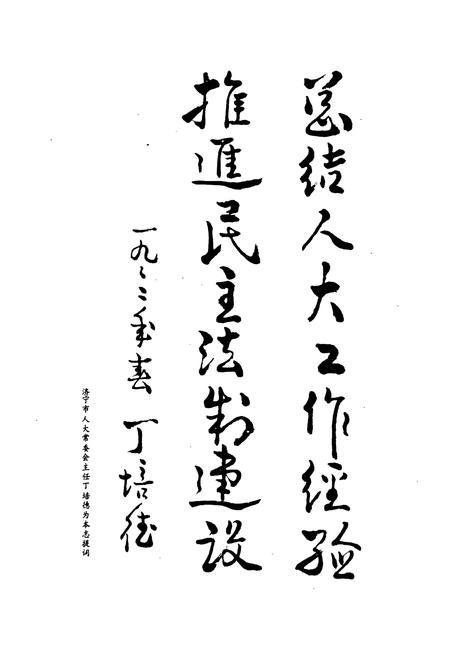 总结人大工作經验
推進民主法制建设
一九九二年春 丁培德
济宁市人大常委会主任丁培德为本志提词